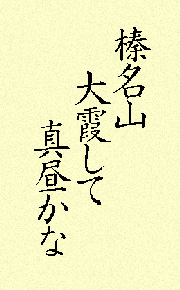 榛名山
大霞して
真昼かな